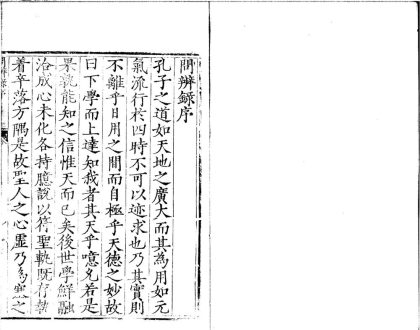 問辨錄序
孔子之道如天地之廣大而其為用如元
氣流行於四時不可以迹求也乃其實則
不離乎日用之間而自極乎天德之妙故
曰下學而上達知我者其天乎噫夐若是
果孰能知之信惟天而已矣後世學鮮融
洽成心未化各持臆說以符聖軌既存執
着卒落方隅是故聖人之心虛乃為應之
問辨錄序